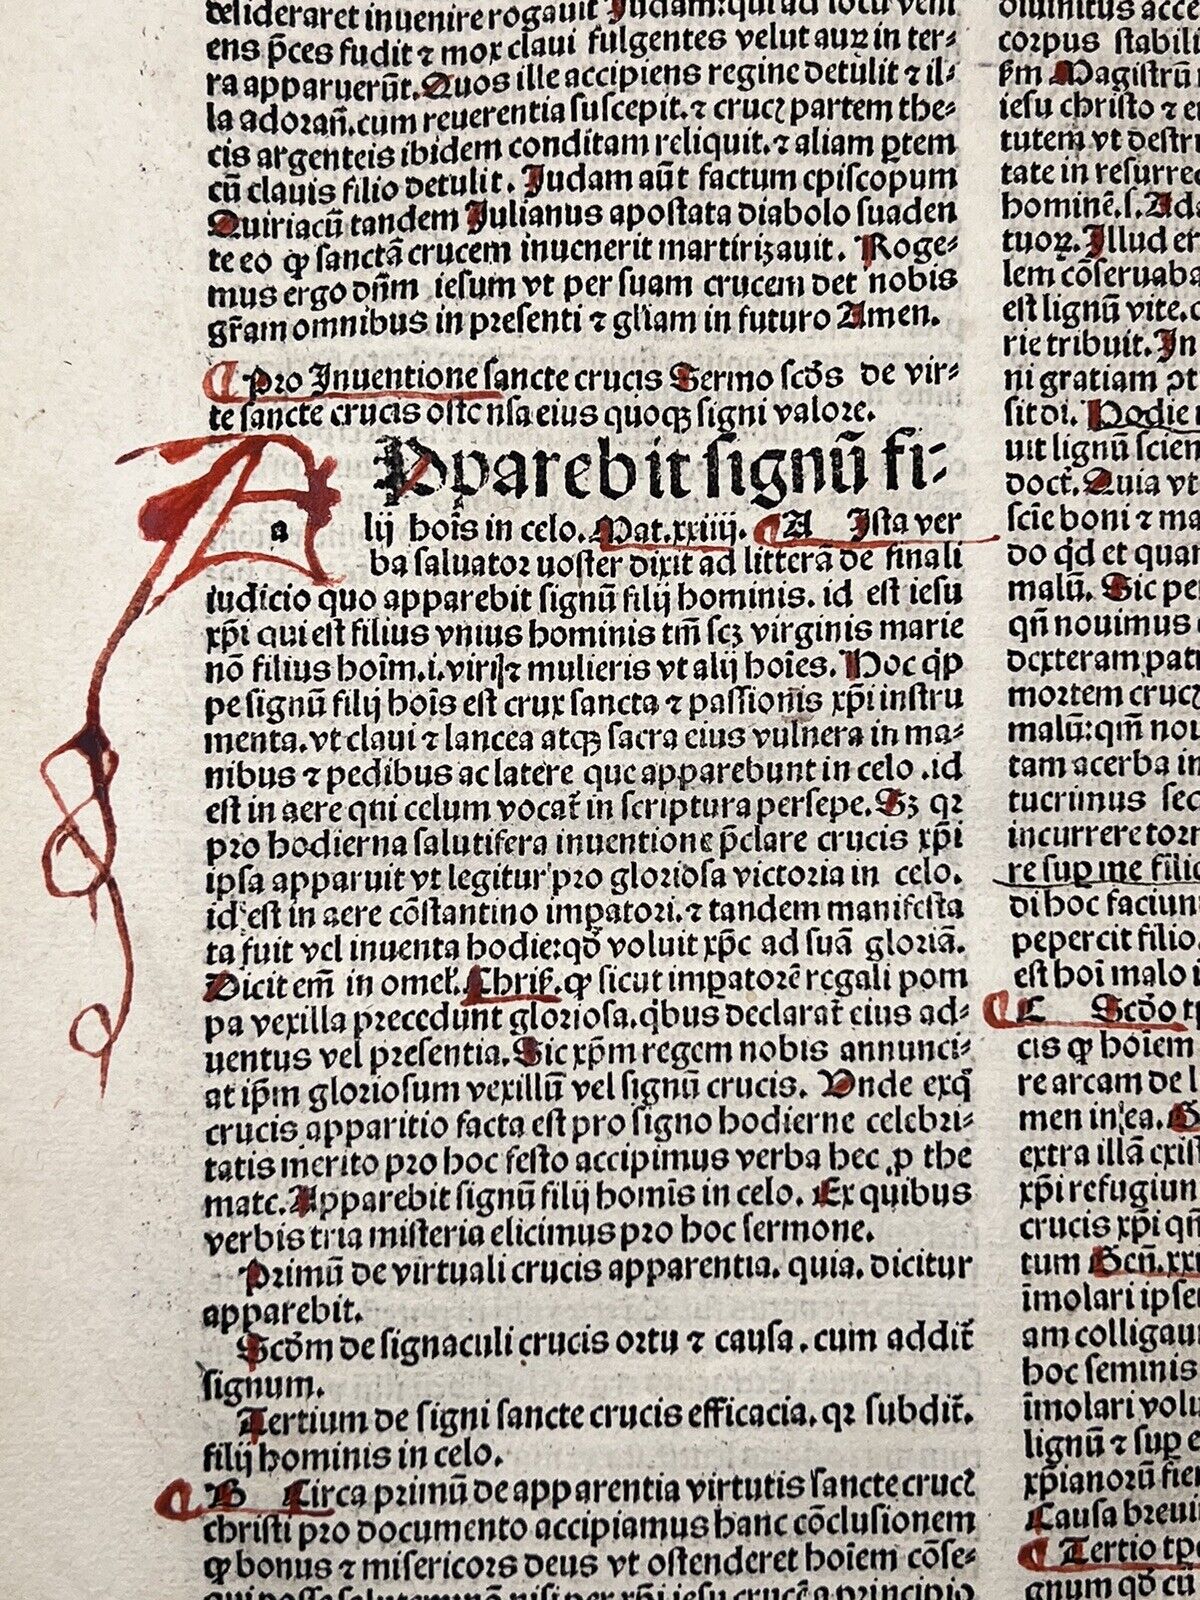 desideraret inuenire rogauit Iudam: qui ad locū veni
ens p̄ces fudit ⁊ mox claui fulgentes velut auꝝ in ter⸗
ra apparuerūt. Quos ille accipiens regine detulit ⁊ il⸗
la adorañ. cum reuerentia suscepit. ⁊ crucꝭ partem the⸗
cis argenteis ibidem conditam reliquit. ⁊ aliam ꝑtem
cū clauis filio detulit. Iudam aūt factum episcopum
Quiriacū tandem Iulianus apostata diabolo suaden
te eo ꝙ sanctā crucem inuenerit martirizauit. Roge⸗
mus ergo dn̄m iesum vt per suam crucem det nobis
gr̄am omnibus in presenti ⁊ gl'iam in futuro Amen.
¶ Pro Inuentione sancte crucis Sermo scd̄s de vir⸗
te sancte crucis ostensa eius quoqꝫ signi valore.
APparebit signū fi⸗
a lij hoīs in celo. Mat. xxiiij. ¶ A Ista ver
ba saluator uoster dixit ad litterā de finali
iudicio quo apparebit signū filij hominis. id est iesu
xp̄i qui est filius vnius hominis tm̄ scꝫ virginis marie
nō filius hoīm. i. viri ⁊ mulieris vt alij hoīes. Hoc q̇p
pe signū filij hoīs est crux sancta ⁊ passionis xp̄i instru
menta. vt claui ⁊ lancea atqꝫ sacra eius vulnera in ma⸗
nibus ⁊ pedibus ac latere que apparebunt in celo. id
est in aere qui celum vocat̄ in scriptura persepe. Sꝫ qꝛ
pro hodierna salutifera inuentione p̄clare crucis xp̄i
ipsa apparuit vt legitur pro gloriosa victoria in celo.
id est in aere cōstantino imꝑatori. ⁊ tandem manifesta
ta fuit vel inuenta hodie: qd̄ voluit xp̄c ad suā gloriā.
Dicit em̄ in omel'. Chris'. ꝙ sicut imꝑatorē regali pom
pa vexilla precedunt gloriosa. q̇bus declarat̄ eius ad⸗
uentus vel presentia. Sic xp̄m regem nobis annunci⸗
at ip̄m gloriosum vexillū vel signū crucis. Unde exq̇
crucis apparitio facta est pro signo hodierne celebri⸗
tatis merito pro hoc festo accipimus verba hec ꝓ the
mate. Apparebit signū filij homīs in celo. Ex quibus
verbis tria misteria elicimus pro hoc sermone.
Primū de virtuali crucis apparentia. quia. dicitur
apparebit.
Scd̄m de signaculi crucis ortu ⁊ causa. cum addit̄
signum.
Tertium de signi sancte crucis efficacia. qꝛ subdit̄.
filij hominis in celo.
¶ B Circa primū de apparentia virtutis sancte crucꝭ
christi pro documento accipiamus hanc cōclusionem
ꝙ bonus ⁊ misericors deus vt ostenderet hoīem cōse⸗
qui posse salutem nō nisi per xp̄i iesu crucē a principio
diuinitus acce
corpus stabili
Magistrū
iesu christo ⁊ e
tutem vt destr
tate in resurrec
hominē. s. Ada
tuoꝝ. Illud et
lem cōseruaba
est lignū vite. c
rie tribuit. In
ni gratiam
sit di. Hodie
uit lignū scien
doct̄. Quia vt
scīe boni ⁊ ma
do qd̄ et quan
malū. Sic pe
qn̄ nouimus
dexteram patr
mortem crucꝭ
malū: qm̄ nou
tam acerba in
tucrimus sec
incurrere torr
re suꝑ me filic
di hoc faciun
pepercit filio.
est hoī malo i
¶ C Scd̄o tp
cis ꝙ hoīem
re arcam de l
men in ea. G
extra illā exist
xp̄i refugiun
crucis xp̄i qn̄
tum Gen̄. xxi
īmolari ipse
am colligau
hoc seminis
īmolari volu
lignū ⁊ suꝑ e
xp̄ianorū fie
Causa breui
¶ Tertio tp
gnum qd̄ cū